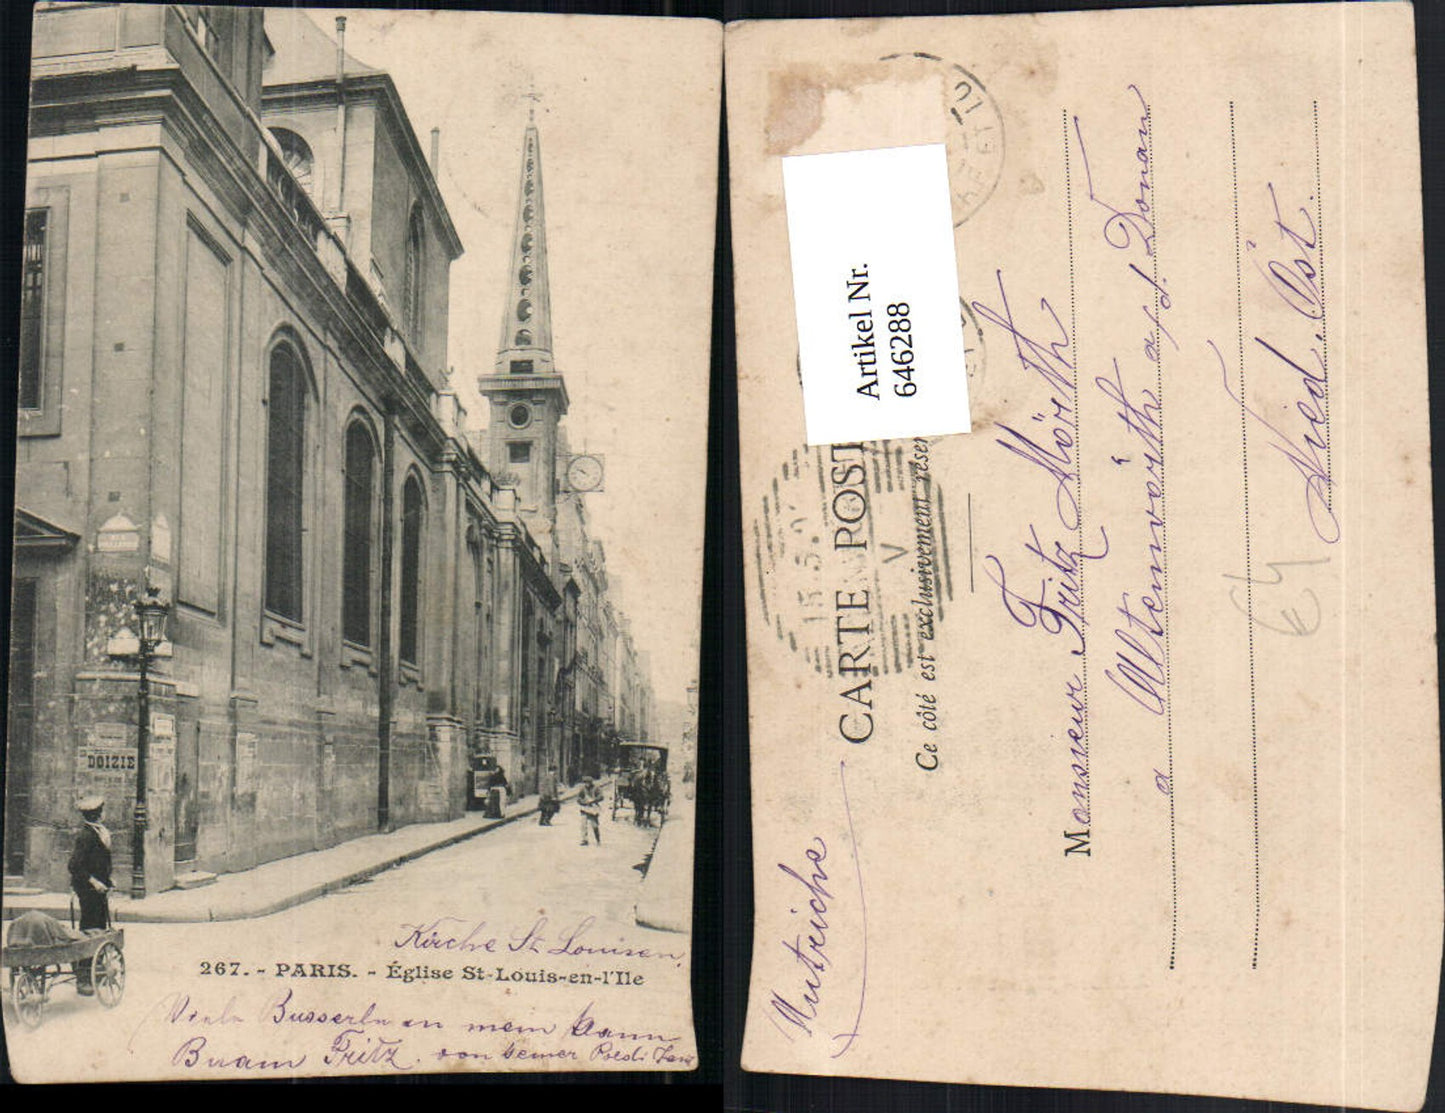 DOIZIE
Kirche St Louisen
267. - PARIS. - Église St-Louis-en-l'Ile
Viele Busserln an mein
Buam Fritz. von seiner
Artikel Nr.
646288
CARTE POST
Ce côté est exclusivement réser
15.5.0
V
01
Monsieur Fritz Mörth
a Altenwörth a/d. Donau
Nied. Öst.
Autriche